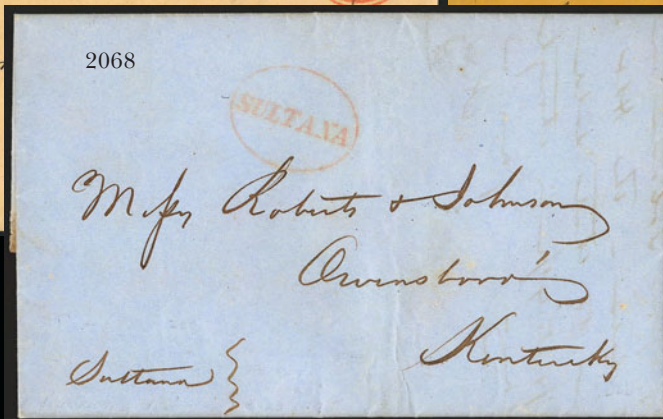 2068
SULTANA
Messrs Roberts & Johnson
Owensboro'
Kentucky
Sultana